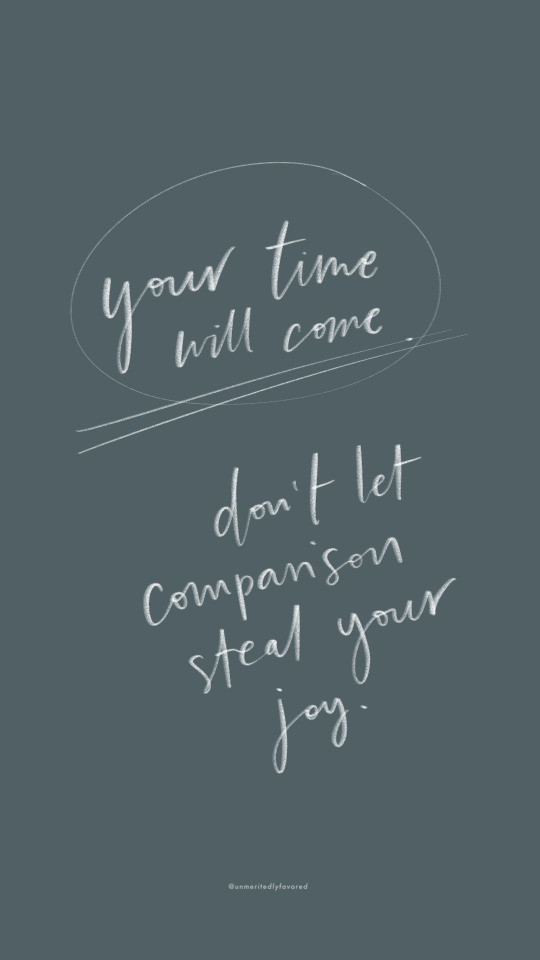 your time
will come
don't let
comparison
steal your
joy.
@unmeritedlyfavored